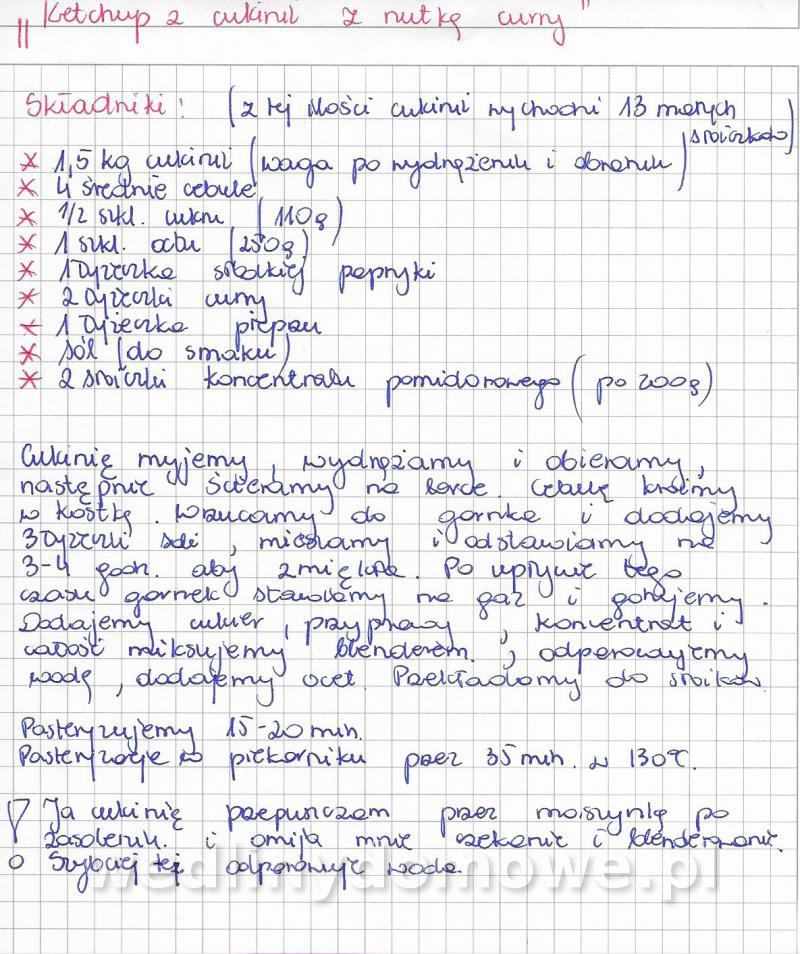 "Ketchup z cukinii z nutką curry"
Składniki: (z tej ilości cukinii wychodzi 13 małych
słoiczków)
* 1,5 kg cukinii (waga po wydrążeniu i obraniu)
* 4 średnie cebule
* 1/2 szkl. cukru (110g)
* 1 szkl. octu (250g)
* 1 łyżeczka słodkiej papryki
* 2 łyżeczki curry
* 1 łyżeczka pieprzu
* sól (do smaku)
* 2 słoiczki koncentratu pomidorowego (po 200g)
Cukinię myjemy, wydrążamy i obieramy,
następnie ścieramy na tarce. Cebulę kroimy
w kostkę. Wrzucamy do garnka i dodajemy
3 łyżeczki soli, mieszamy i odstawiamy na
3-4 godz. aby zmiękła. Po upływie tego
czasu garnek stawiamy na gaz i gotujemy.
Dodajemy cukier, przyprawy, koncentrat i
całość miksujemy blenderem., odparowujemy
wodę, dodajemy ocet. Przekładamy do słoików.
Pasteryzujemy 15-20 min.
Pasteryzacja w piekarniku przez 35 min. w 130°C.
! Ja cukinię przepuszczam przez maszynkę po
zasoleniu. i omija mnie czekanie i blenderowanie.
Szybciej też odparowuje woda.
wedlinydomowe.pl